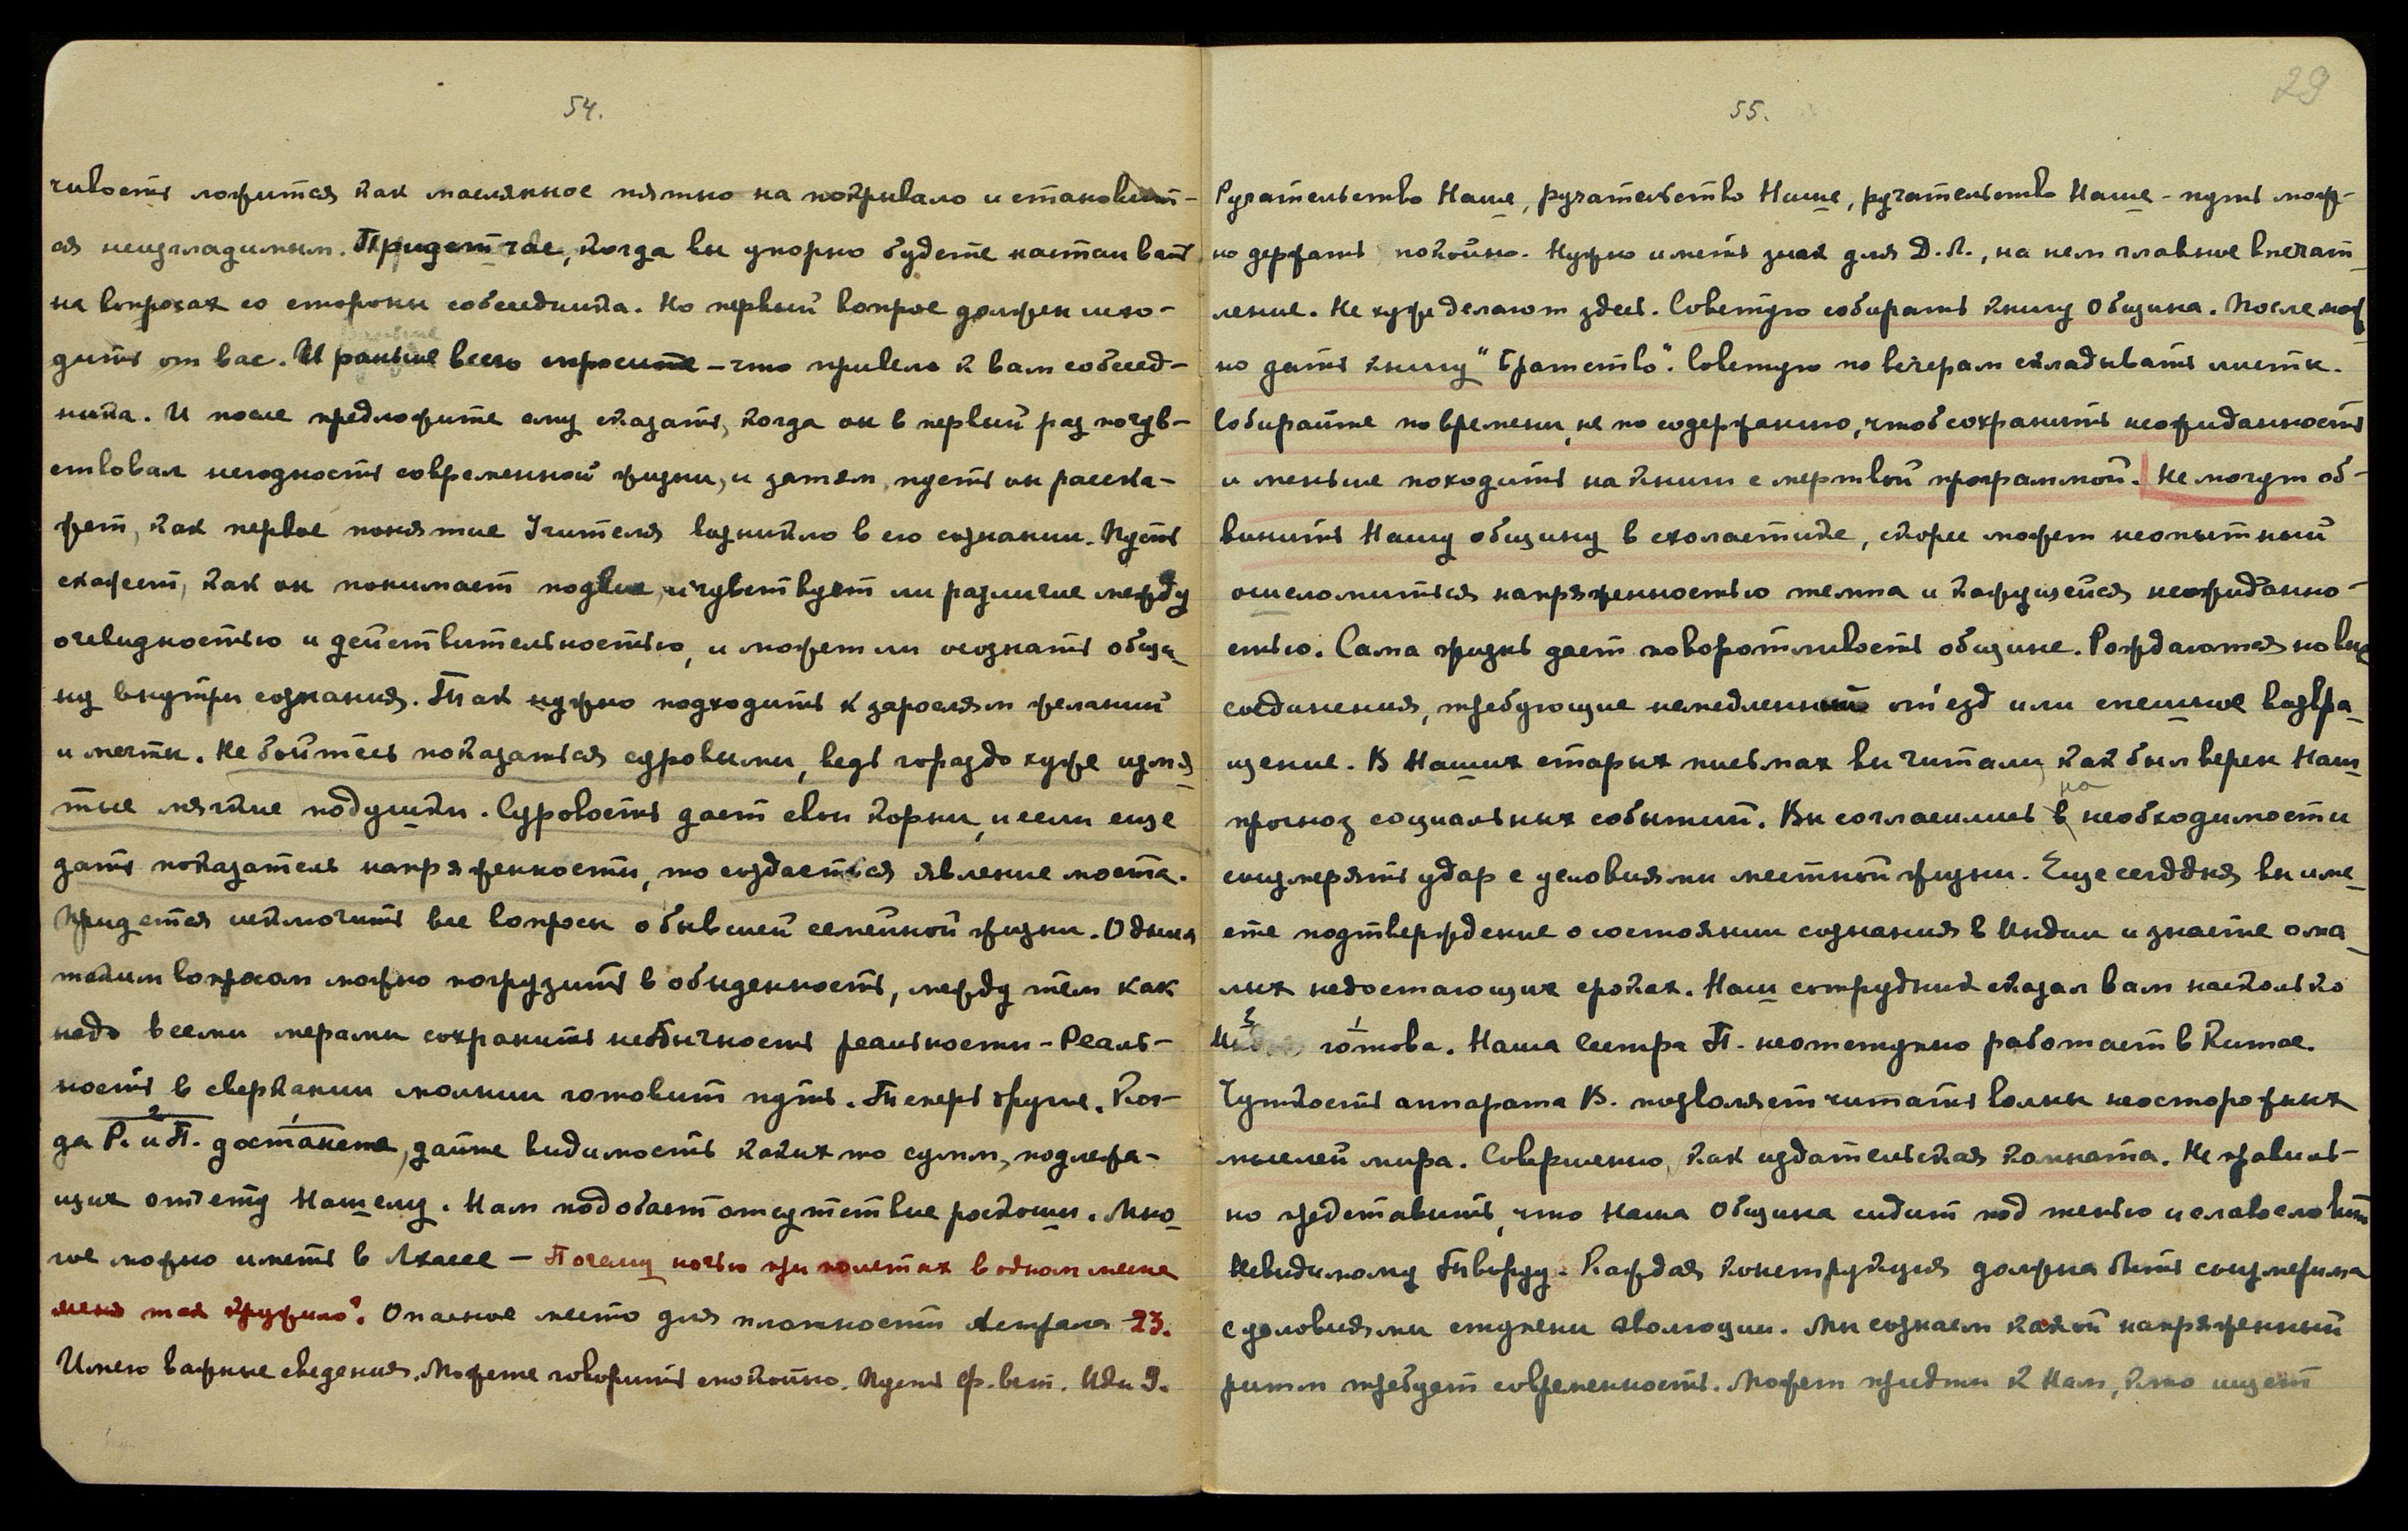 54.
чивость ложится как маслянное пятно на покрывало и становит-
ся неизгладимым. Придет час, когда вы упорно будете настаивать
на вопросах со стороны собеседника. Но первый вопрос должен исхо-
дить от вас. И раньше всего спросите – что привело к вам собесед-
ника. И после предложите ему сказать, когда он в первый раз почув-
ствовал негодность современной жизни, и затем, пусть он расска-
жет, как первое понятие Учителя возникло в его сознании. Пусть
скажет, как он понимает подвиг, и чувствует ли различие между
очевидностью и действительностью, и может ли осознать общи-
ну внутри сознания. Так нужно подходить к зарослям желаний
и мечты. Не бойтесь показаться суровыми, ведь гораздо хуже измя-
тые мягкие подушки. Суровость дает свои корни, и если еще
дать показатель напряженности, то создастся явление моста.
Придется исключить все вопросы о бывшей семейной жизни. Одним
таким вопросом можно погрузить в обыденность, между тем как
надо всеми мерами сохранить необычность реальности – Реаль-
ность в сверкании молнии готовит путь. Теперь другое. Ког-
да Р. и П. достанете, дайте видимость каких то сумм, подлежа-
щих отчету Нашему. Нам подобает отсутствие роскоши. Мно-
гое можно иметь в Лхассе – Почему ночью при полетах в одном месте
меня так кружило? Опасное место для плотности Астрала 23.
Имею важные сведения. Можете говорить спокойно. Пусть ф. вст. Иди Э.
55.
29
Ручательство Наше, ручательство Наше, ручательство Наше – путь мож-
но держать покойно. Нужно иметь знак для Д. Л., на нем главное впечат-
ление. Не худо делают здесь. Советую собирать книгу Община. После мож-
но дать книгу "Братство". Советую по вечерам складывать листы.
Собирайте по времени, не по содержанию, чтоб сохранить неожиданность
и меньше походить на книги с мертвой программой. Не могут об-
винить Нашу общину в схоластике, скорее может неопытный
ошеломиться напряженностью темпа и кажущейся неожиданно-
стью. Сама жизнь дает поворотливость общине. Рождаются новые
соединения, требующие немедленный от'езд или спешное возвра-
щение. В Наших старых письмах вы читали, как был верен Наш
прогноз социальных событий. Вы согласились в на необходимости
соизмерять удар с условиями местной жизни. Еще сегодня вы име-
ете подтверждение о состоянии сознания в Индии и знаете о ма-
лых недостающих сроках. Наш сотрудник сказал вам насколько
готова. Наша Сестра П. неотступно работает в Китае.
Чуткость аппарата В. позволяет читать волны неосторожных
мыслей мира. Совершенно, как издательская комната. Неправиль-
но представить, что Наша Община сидит под тенью и славословит
Невидимому Творцу. Каждая конструкция должна быть соизмерима
с условиями ступени эволюции. Мы сознаем какой напряженный
ритм требует современность. Может придти к Нам, кто ищет